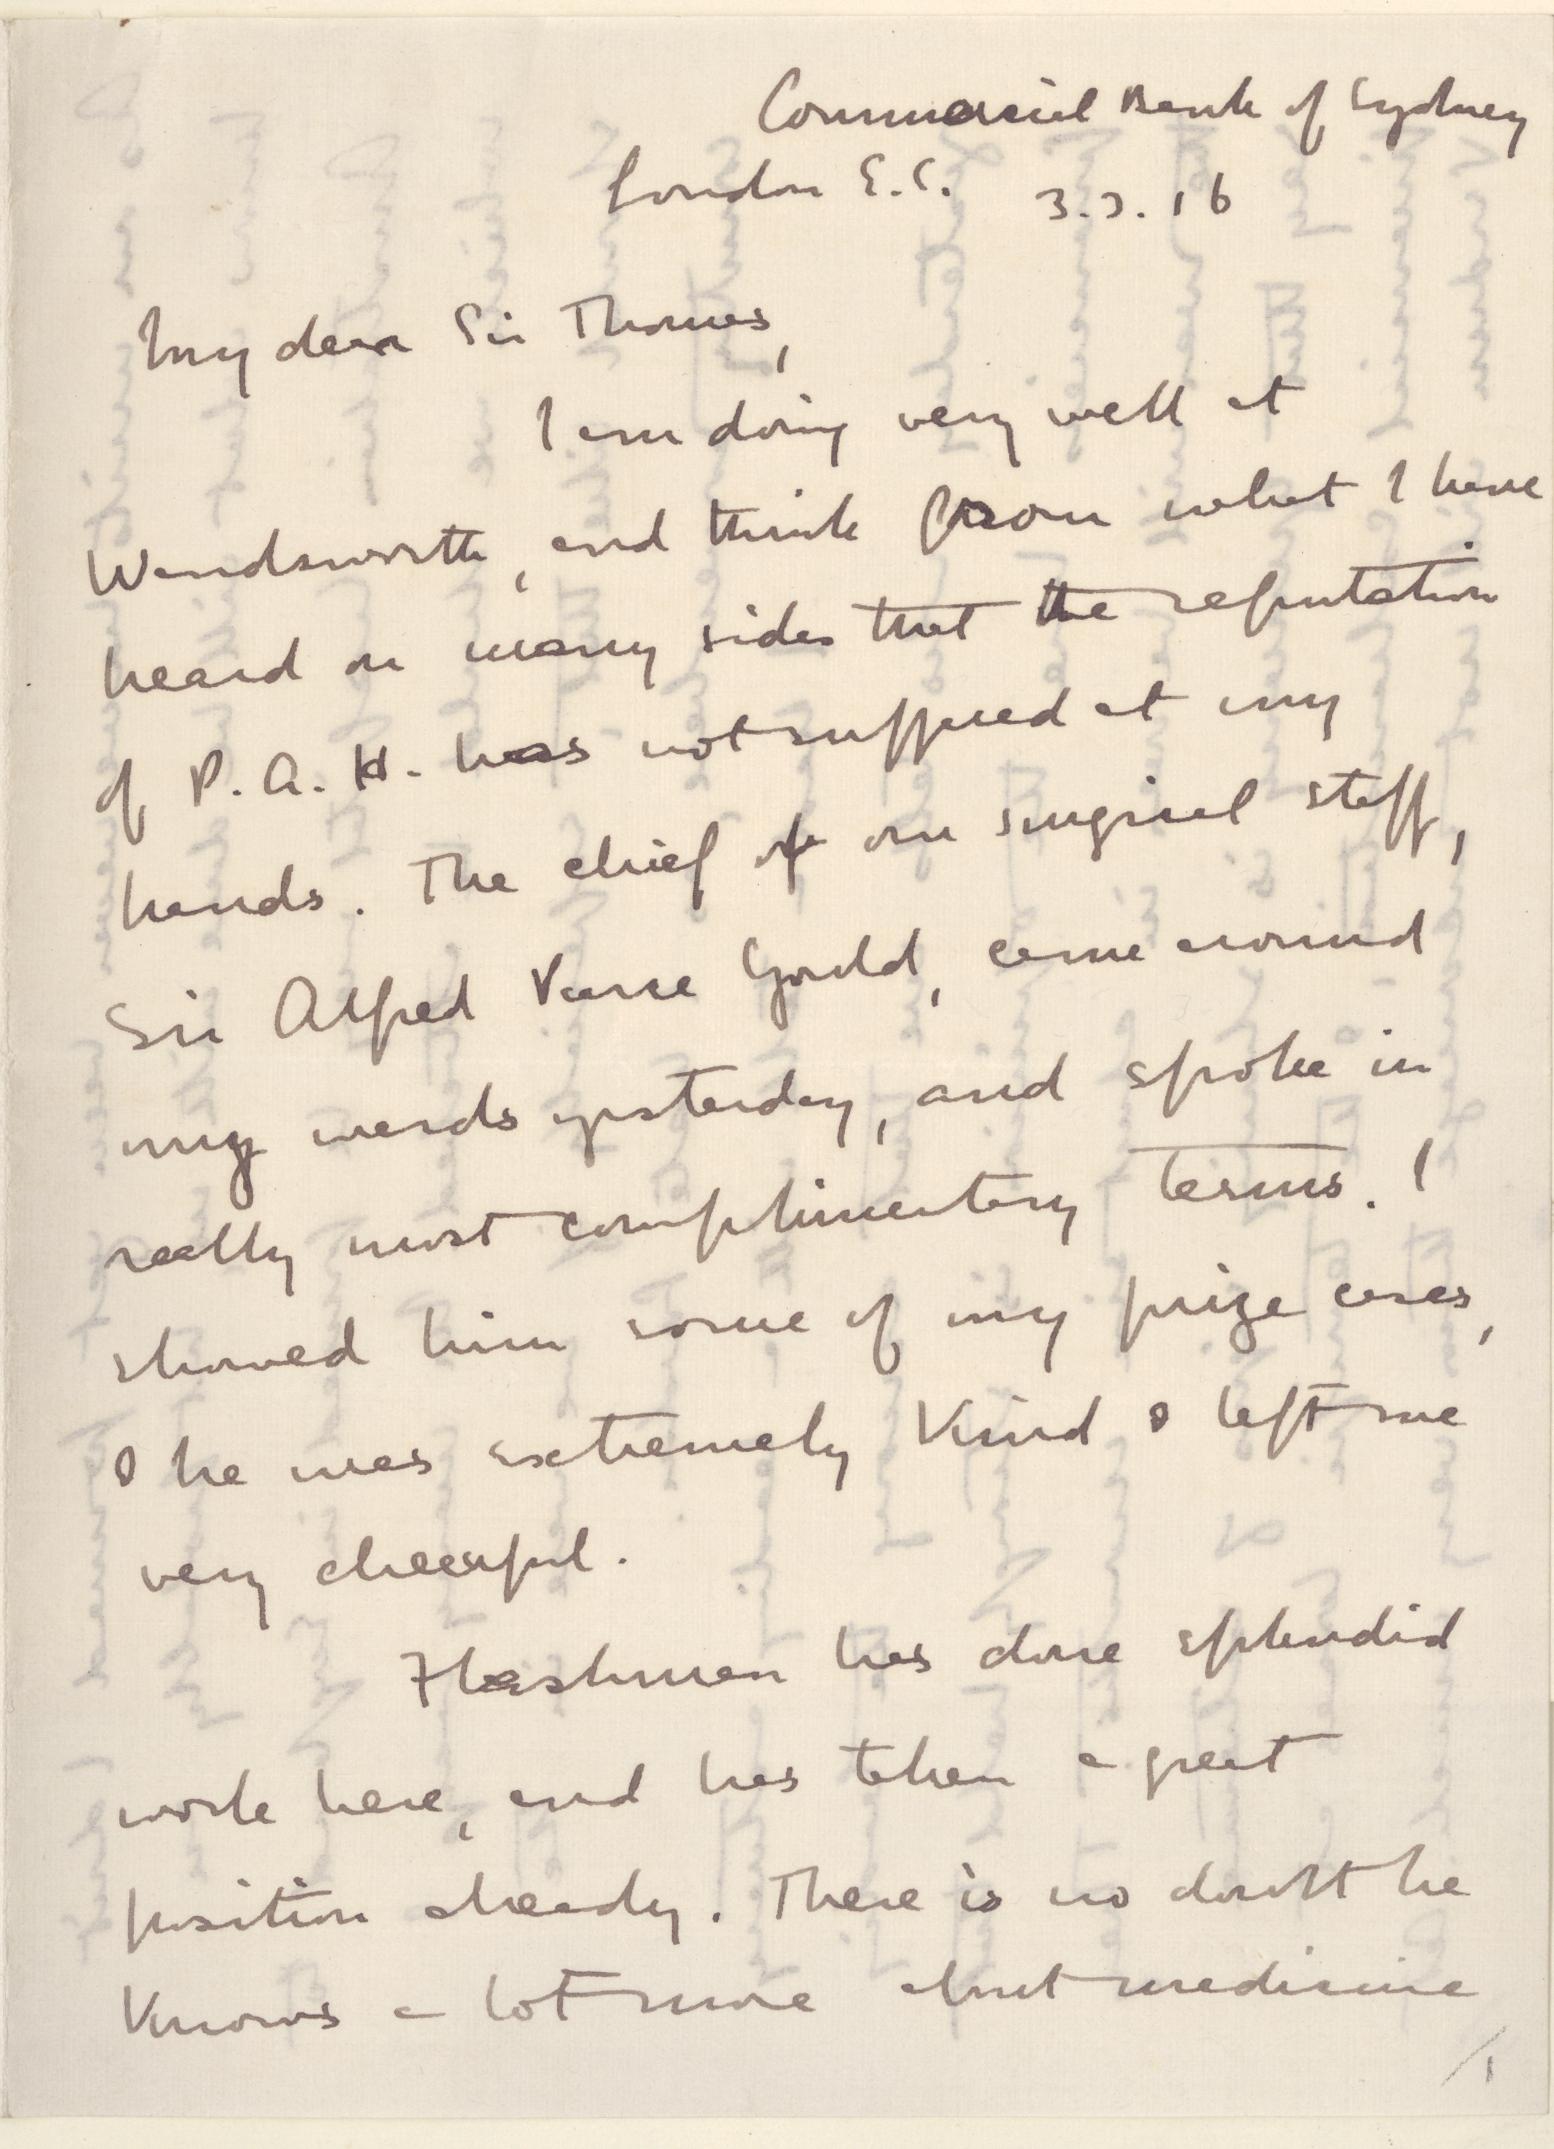 Commercial Bank of Sydney
London E.C. 3.3.16
My dear Sir Thomas,
I am doing very well at
Wandsworth, and think from what I have
heard on many sides that the reputation
of P.A.H. has not suffered at my
hands. The chief of our surgical staff,
Sir Alfred Pearce Gould, came around
my wards yesterday, and spoke in
really most complimentary terms. I
showed him some of my prize cases,
& he was extremely kind & left me
very cheerful.
Flashman has done splendid
work here, and has taken a great
position already. There is no doubt he
knows a lot more about medicine
/1